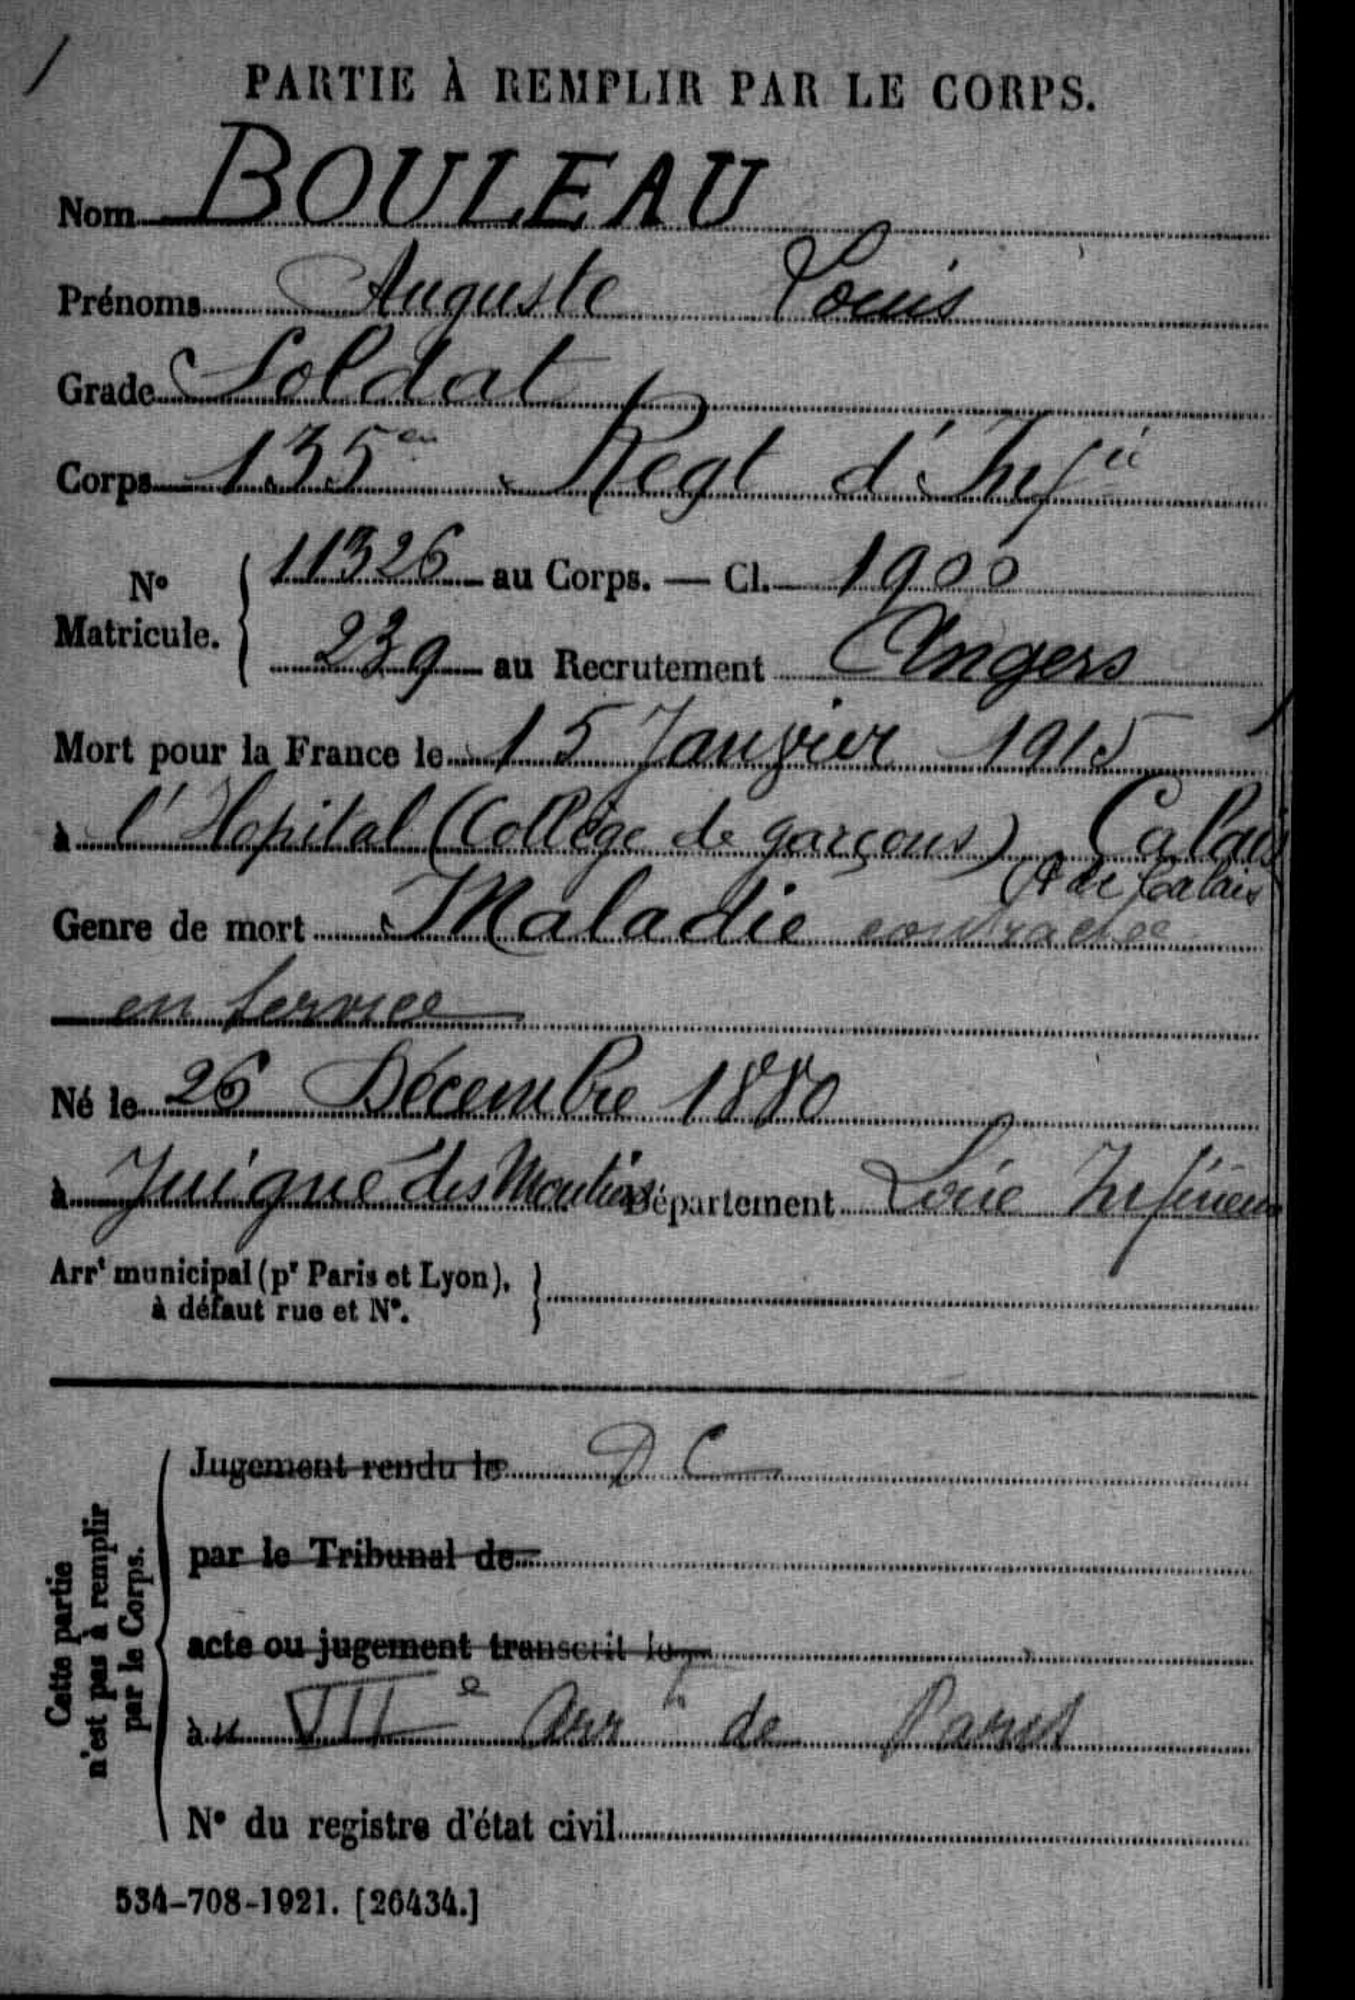 PARTIE À REMPLIR PAR LE CORPS.
Nom BOULEAU
Prénoms Auguste Louis
Grade Soldat
Corps 135e Regt d'Infie
No Matricule. { 11326 au Corps. — Cl. 1900
239 au Recrutement Angers
Mort pour la France le 15 Janvier 1915
à l'Hopital (Collège de garçons) Calais
P de Calais
Genre de mort Maladie contractée
en service
Né le 26 Décembre 1880
à Juigné des Moutiers Département Loire Inférieure
Arrt municipal (pr Paris et Lyon), }
à défaut rue et No.
Cette partie
n'est pas à remplir
par le Corps.
Jugement rendu le D C
par le Tribunal de
acte ou jugement transcrit le
au VIIe Arrt de Paris
No du registre d'état civil
534-708-1921. [26434.]